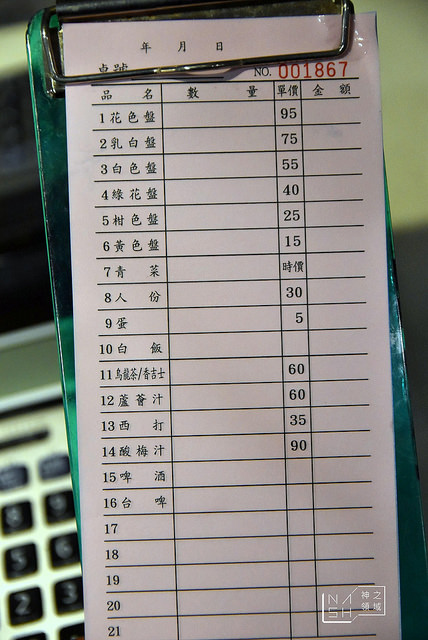 年 月 日
桌號 NO. 001867
品名 數量 單價 金額
1 花色盤 95
2 乳白盤 75
3 白色盤 55
4 綠花盤 40
5 柑色盤 25
6 黃色盤 15
7 青菜 時價
8 人份 30
9 蛋 5
10 白飯
11 烏龍茶/香吉士 60
12 蘆薈汁 60
13 西打 35
14 酸梅汁 90
15 啤酒
16 台啤
17
18
19
20
21
NASH 神之領域